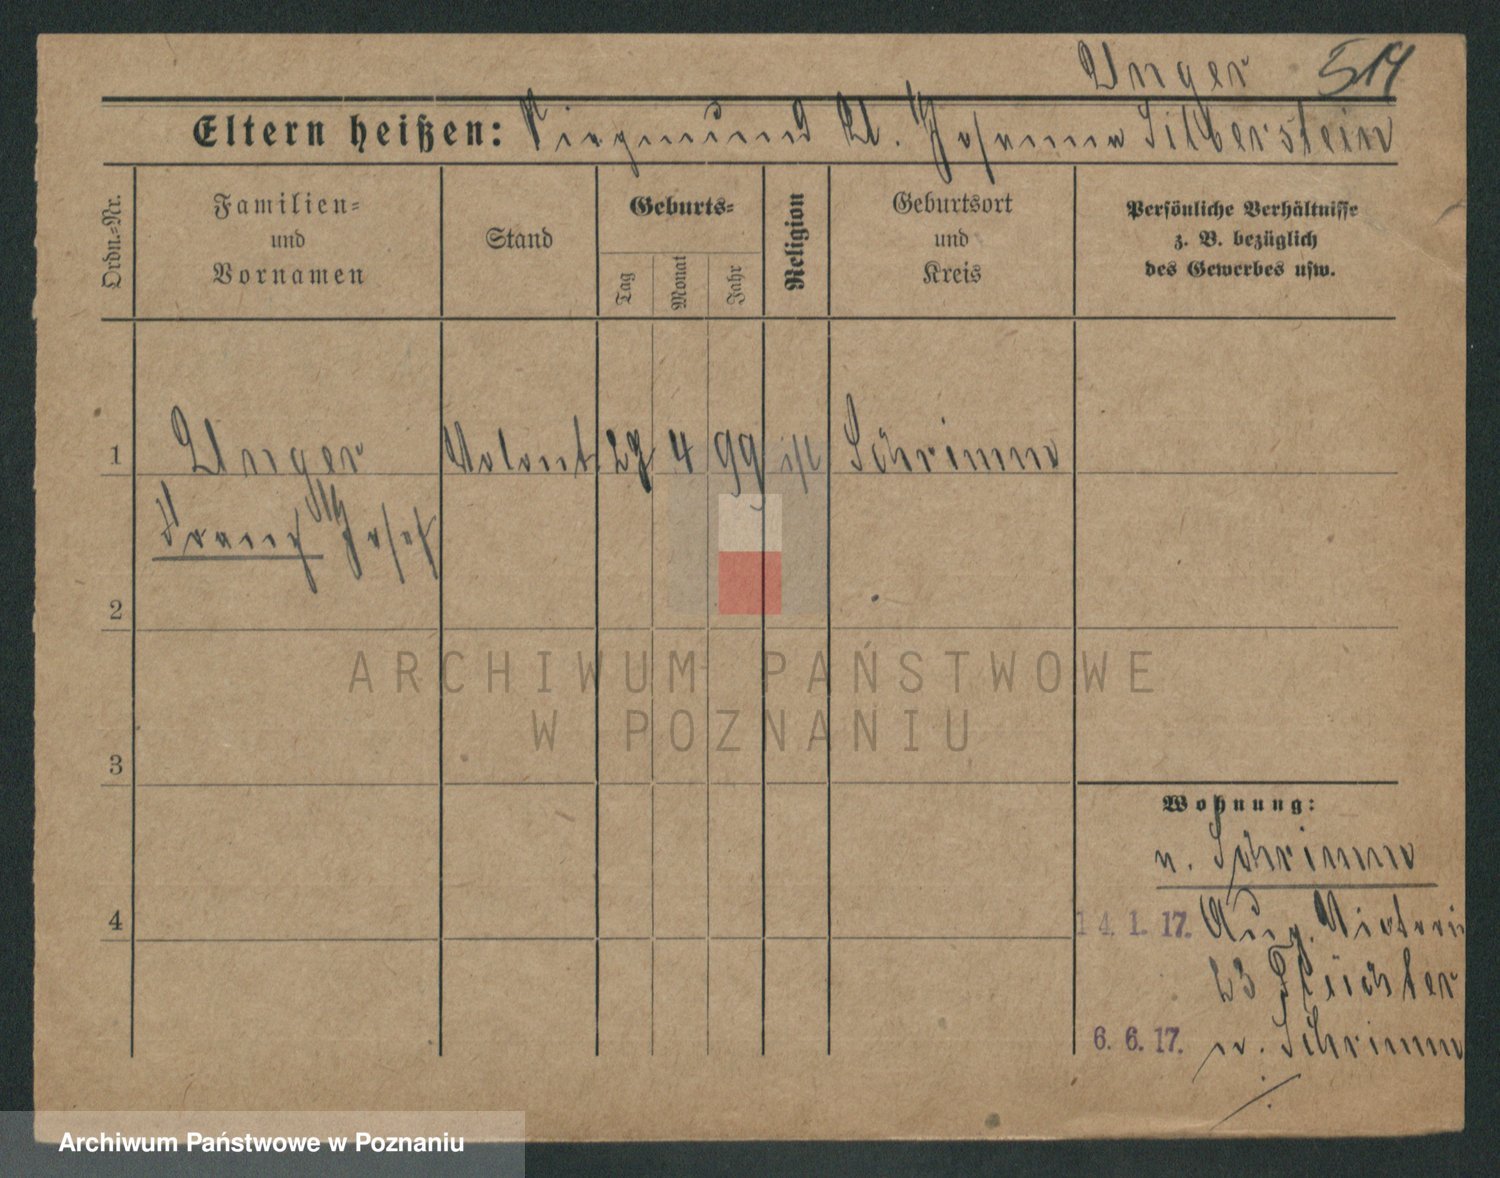 Unger 514
Eltern heißen: Siegmund U. Johanna Silberstein
Ordn.-Nr.
Familien-
und
Vornamen
Stand
Geburts-
Tag
Monat
Jahr
Religion
Geburtsort
und
Kreis
Persönliche Verhältnisse
z. B. bezüglich
des Gewerbes usw.
1 Unger Volont 4 99 Schrimm
Franz Josef
2
3
4
Wohnung:
v. Schrimm
14. 1. 17. Aug. Victoria
23
6. 6. 17. n. Schrimm
ARCHIWUM PAŃSTWOWE
W POZNANIU
Archiwum Państwowe w Poznaniu